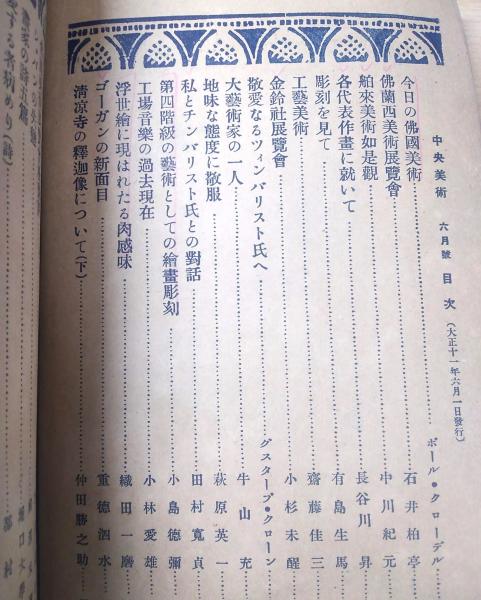 中央美術 六月號 目次 (大正十一年六月一日發行)
今日の佛國美術 ポール・クローデル
佛蘭西美術展覽會 石井柏亭
舶來美術如是觀 中川紀元
各代表作畫に就いて 長谷川昇
彫刻を見て 有島生馬
工藝美術 齋藤佳三
金鈴社展覽會 小杉未醒
敬愛なるツィンバリスト氏へ グスターブ・クローン
大藝術家の一人 牛山充
地味な態度に敬服 萩原英一
私とチンバリスト氏との對話 田村寬貞
第四階級の藝術としての繪畫彫刻 小島德彌
工場音樂の過去現在 小林愛雄
浮世繪に現はれたる肉感味 織田一磨
ゴーガンの新面目 重德泗水
清凉寺の釋迦像について(下) 仲田勝之助